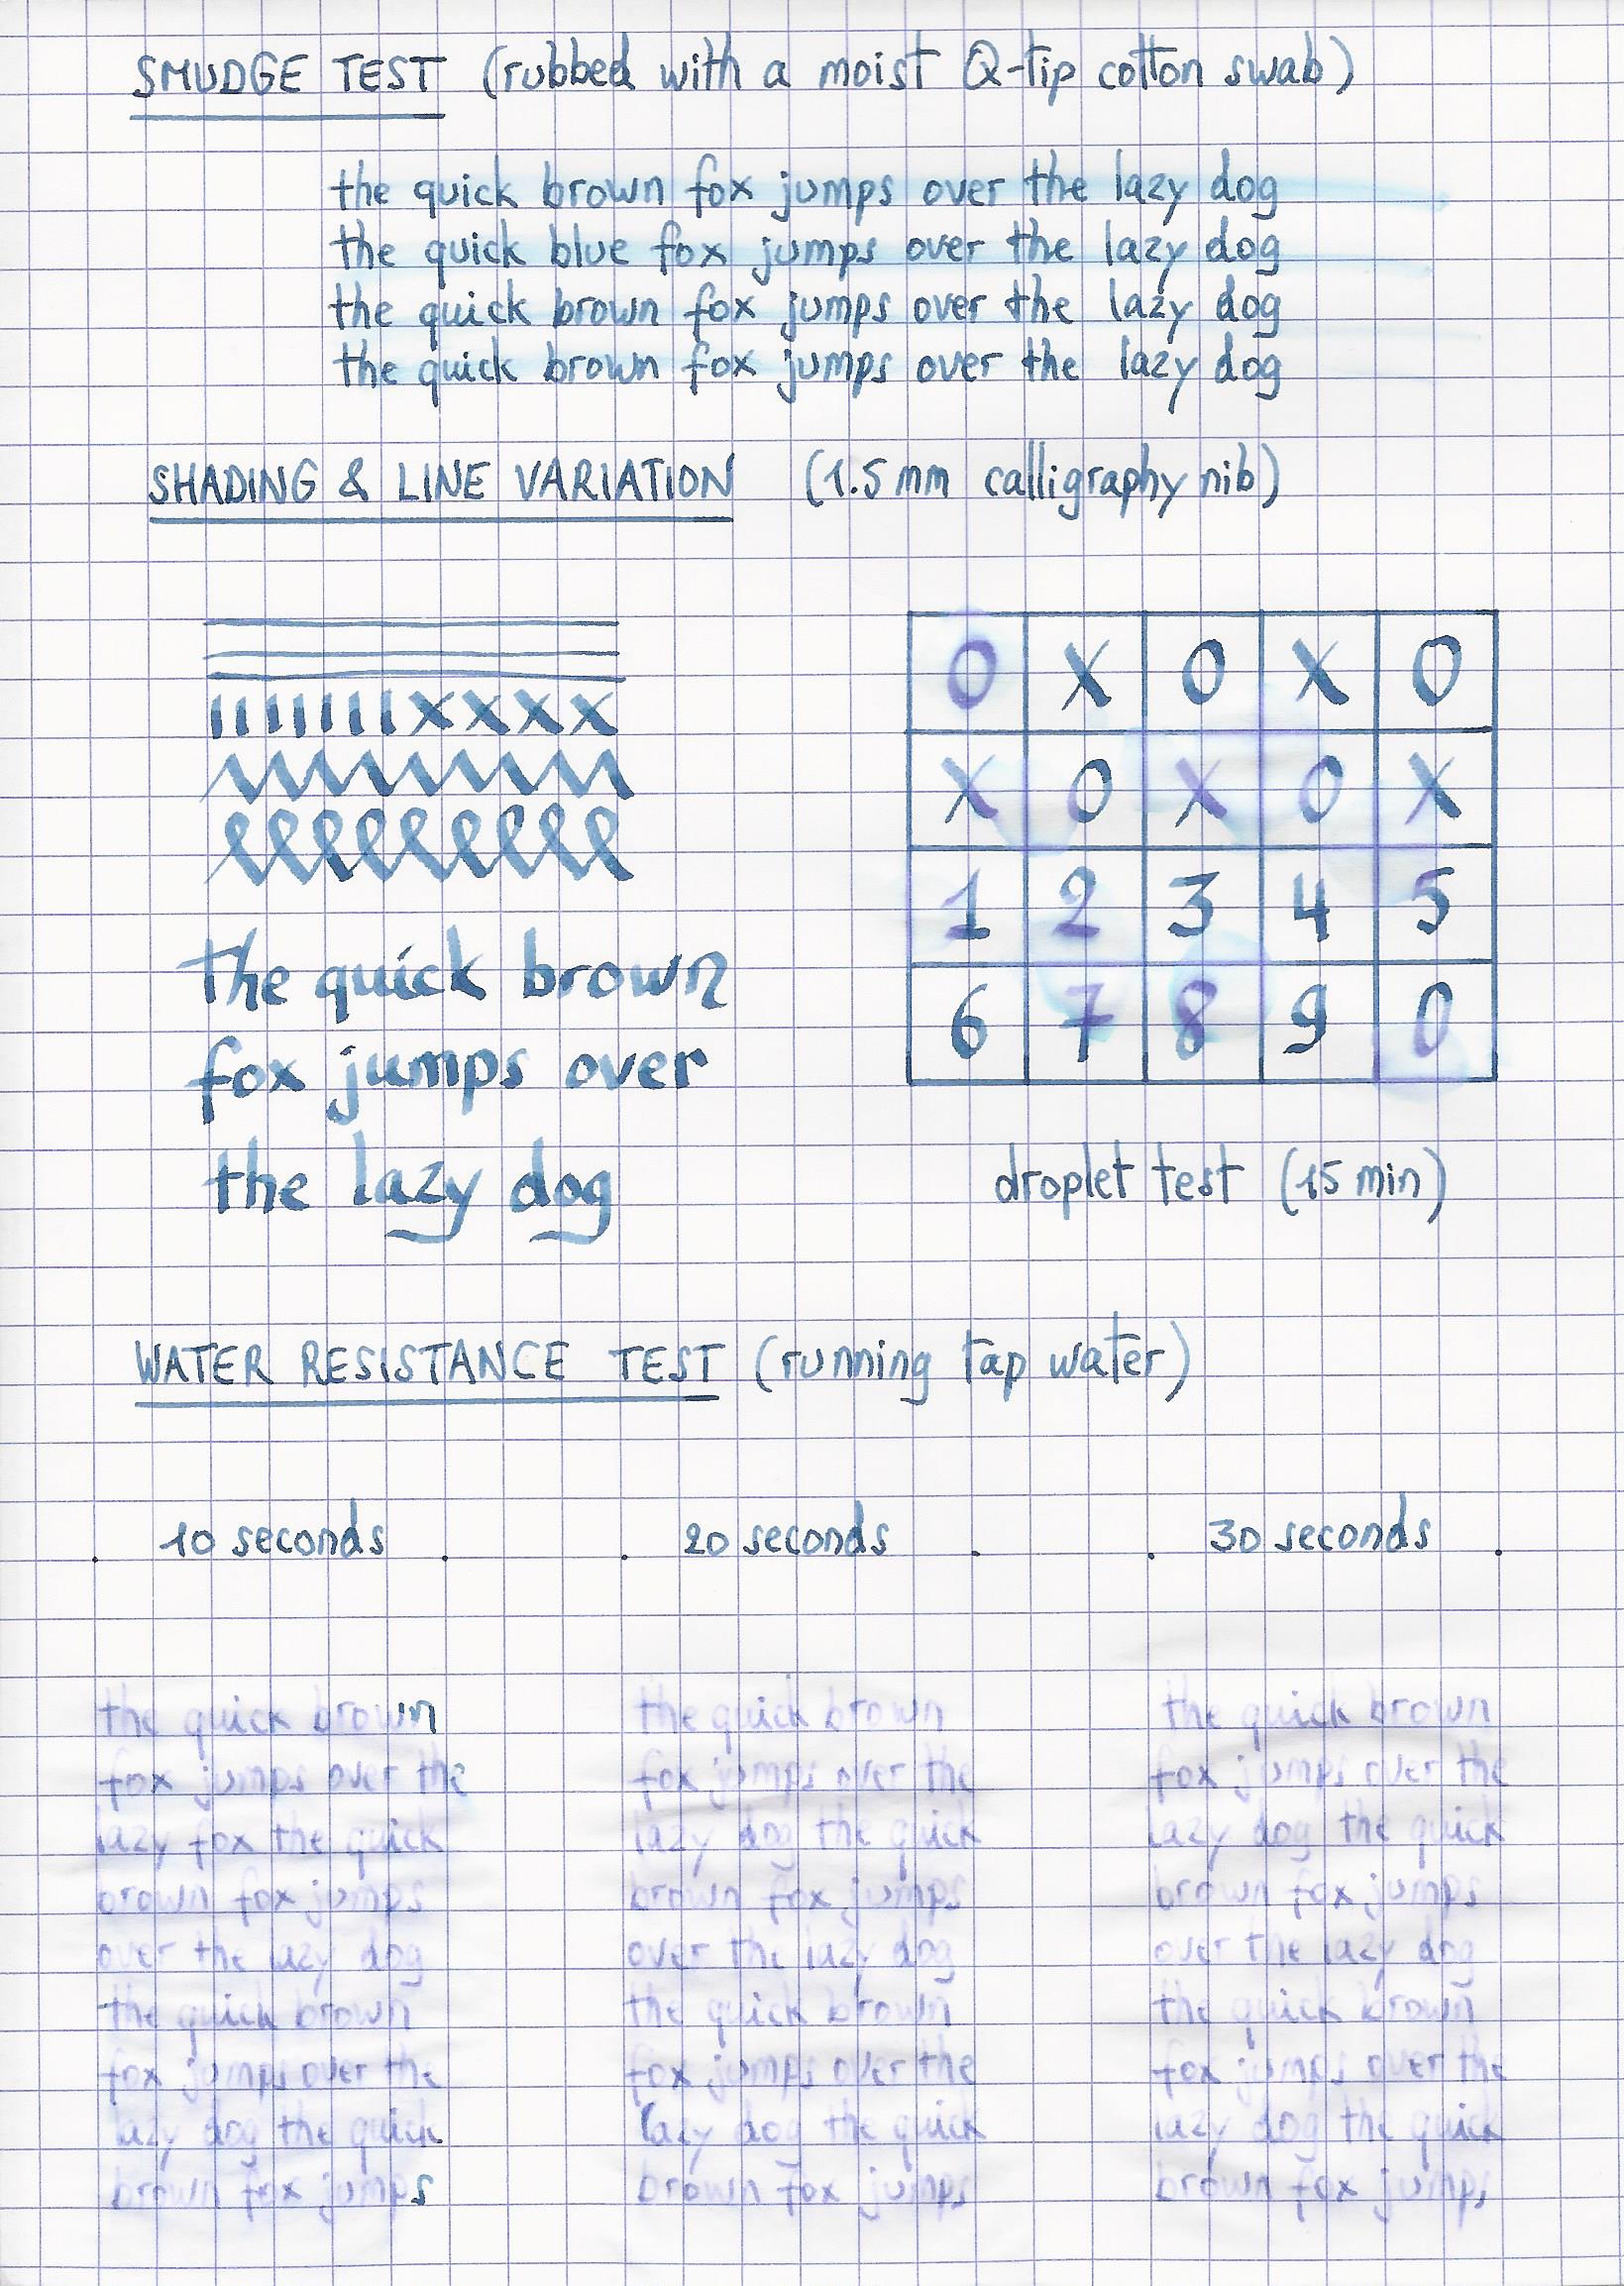 SMUDGE TEST (rubbed with a moist Q-tip cotton swab)
the quick brown fox jumps over the lazy dog
the quick blue fox jumps over the lazy dog
the quick brown fox jumps over the lazy dog
the quick brown fox jumps over the lazy dog
SHADING & LINE VARIATION (1.5 mm calligraphy nib)
the quick brown
fox jumps over
the lazy dog
O X O X O
X O X O X
1 2 3 4 5
6 7 8 9 0
droplet test (15 min)
WATER RESISTANCE TEST (running tap water)
10 seconds
20 seconds
30 seconds
the quick brown
fox jumps over the
lazy fox the quick
brown fox jumps
over the lazy dog
the quick brown
fox jumps over the
lazy dog the quick
brown fox jumps
the quick brown
fox jumps over the
lazy dog the quick
brown fox jumps
over the lazy dog
the quick brown
fox jumps over the
lazy dog the quick
brown fox jumps
the quick brown
fox jumps over the
lazy dog the quick
brown fox jumps
over the lazy dog
the quick brown
fox jumps over the
lazy dog the quick
brown fox jumps